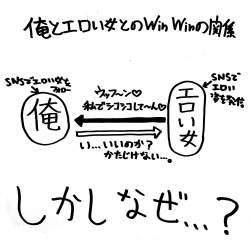 俺とエロい女とのWin Winの関係
SNSでエロい女を
フォロー
俺
ウッフーン♡
私でシコシコして〜ん♡
い…いいのか?
かたじけない…。
SNSで
エロい
姿を発信
エロい女
しかしなぜ…?